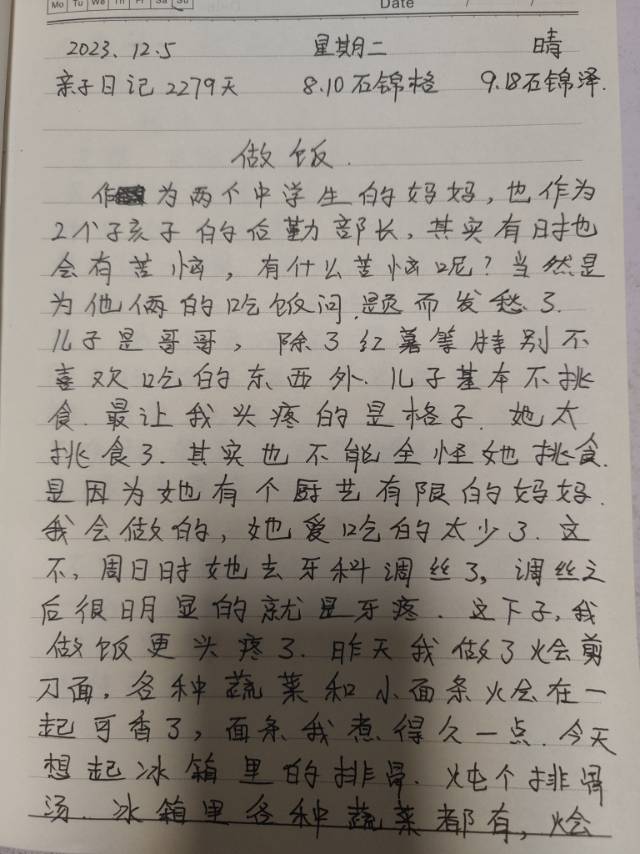 Mo Tu We Th Fr Sa Su Date / /
2023.12.5 星期二 晴
亲子日记2279天 8.10石锦格 9.18石锦泽.
做饭.
作为两个中学生的妈妈,也作为
2个孩子的后勤部长,其实有时也
会有苦恼,有什么苦恼呢?当然是
为他俩的吃饭问题而发愁了.
儿子是哥哥,除了红薯等特别不
喜欢吃的东西外.儿子基本不挑
食.最让我头疼的是格子.她太
挑食了.其实也不能全怪她挑食.
是因为她有个厨艺有限的妈妈.
我会做的,她爱吃的太少了.这
不,周日时她去牙科调丝了,调丝之
后很明显的就是牙疼.这下子,我
做饭更头疼了.昨天我做了烩剪
刀面,各种蔬菜和小面条烩在一
起可香了,面条我煮得久一点.今天
想起冰箱里的排骨.炖个排骨
汤.冰箱里各种蔬菜都有,烩